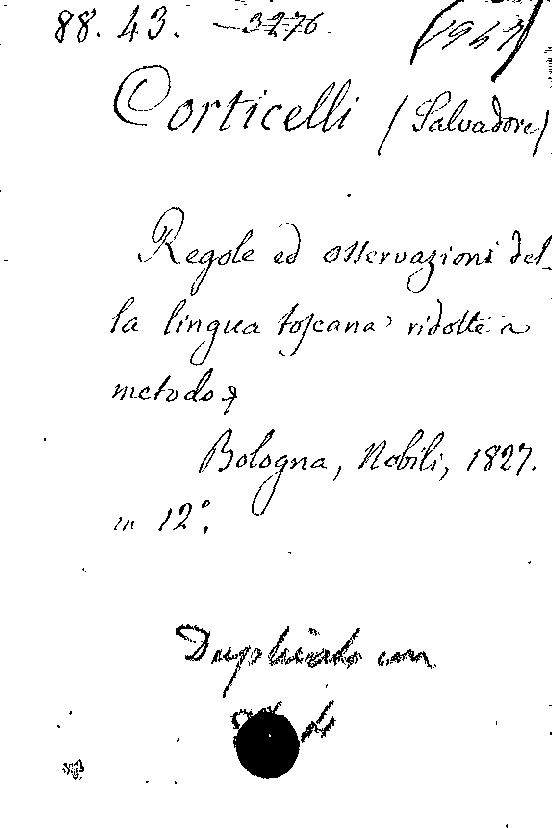 88. 43. 3276
Corticelli (Salvadore)
Regole ed osservazioni del-
la lingua toscana ridotte a
metodo
Bologna, Nobili, 1827.
in 12°.
Duplicato con